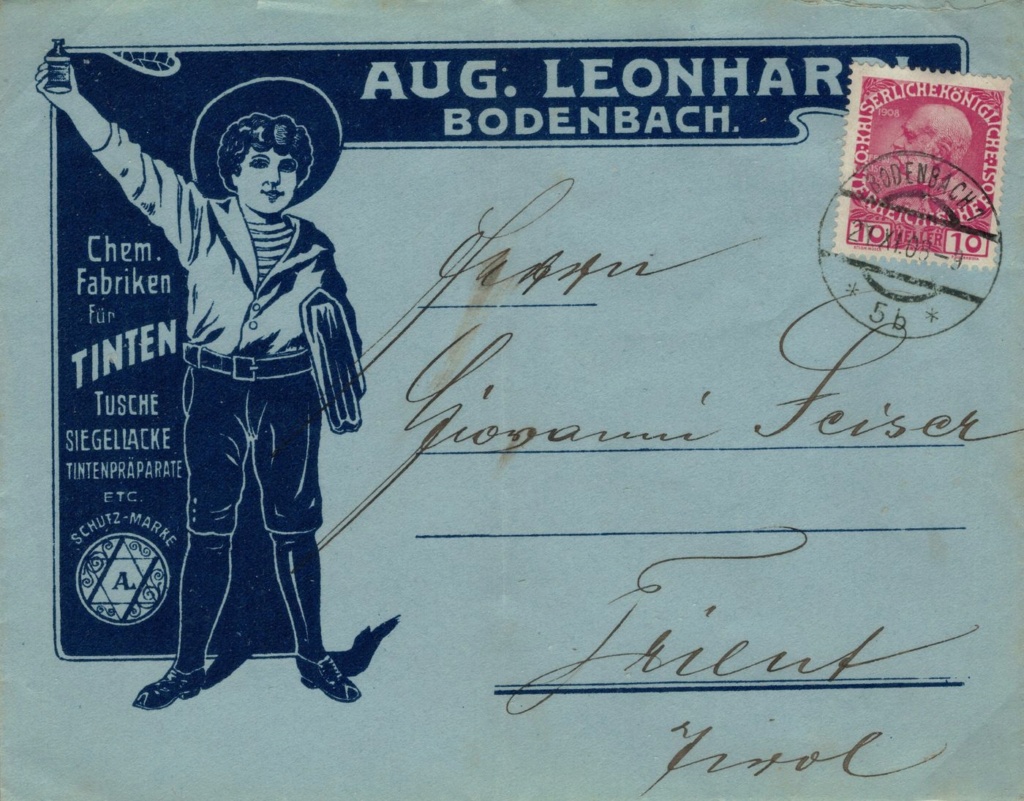 AUG. LEONHARDI
BODENBACH.
Chem.
Fabriken
für
TINTEN
TUSCHE
SIEGELLACKE
TINTENPRÄPARATE
ETC.
SCHUTZ-MARKE
AL
1908
KAISERLICHE KÖNIGLICHE
10 10
BODENBACH
5b
Herrn
Giovanni Seiser
Trient
Tirol